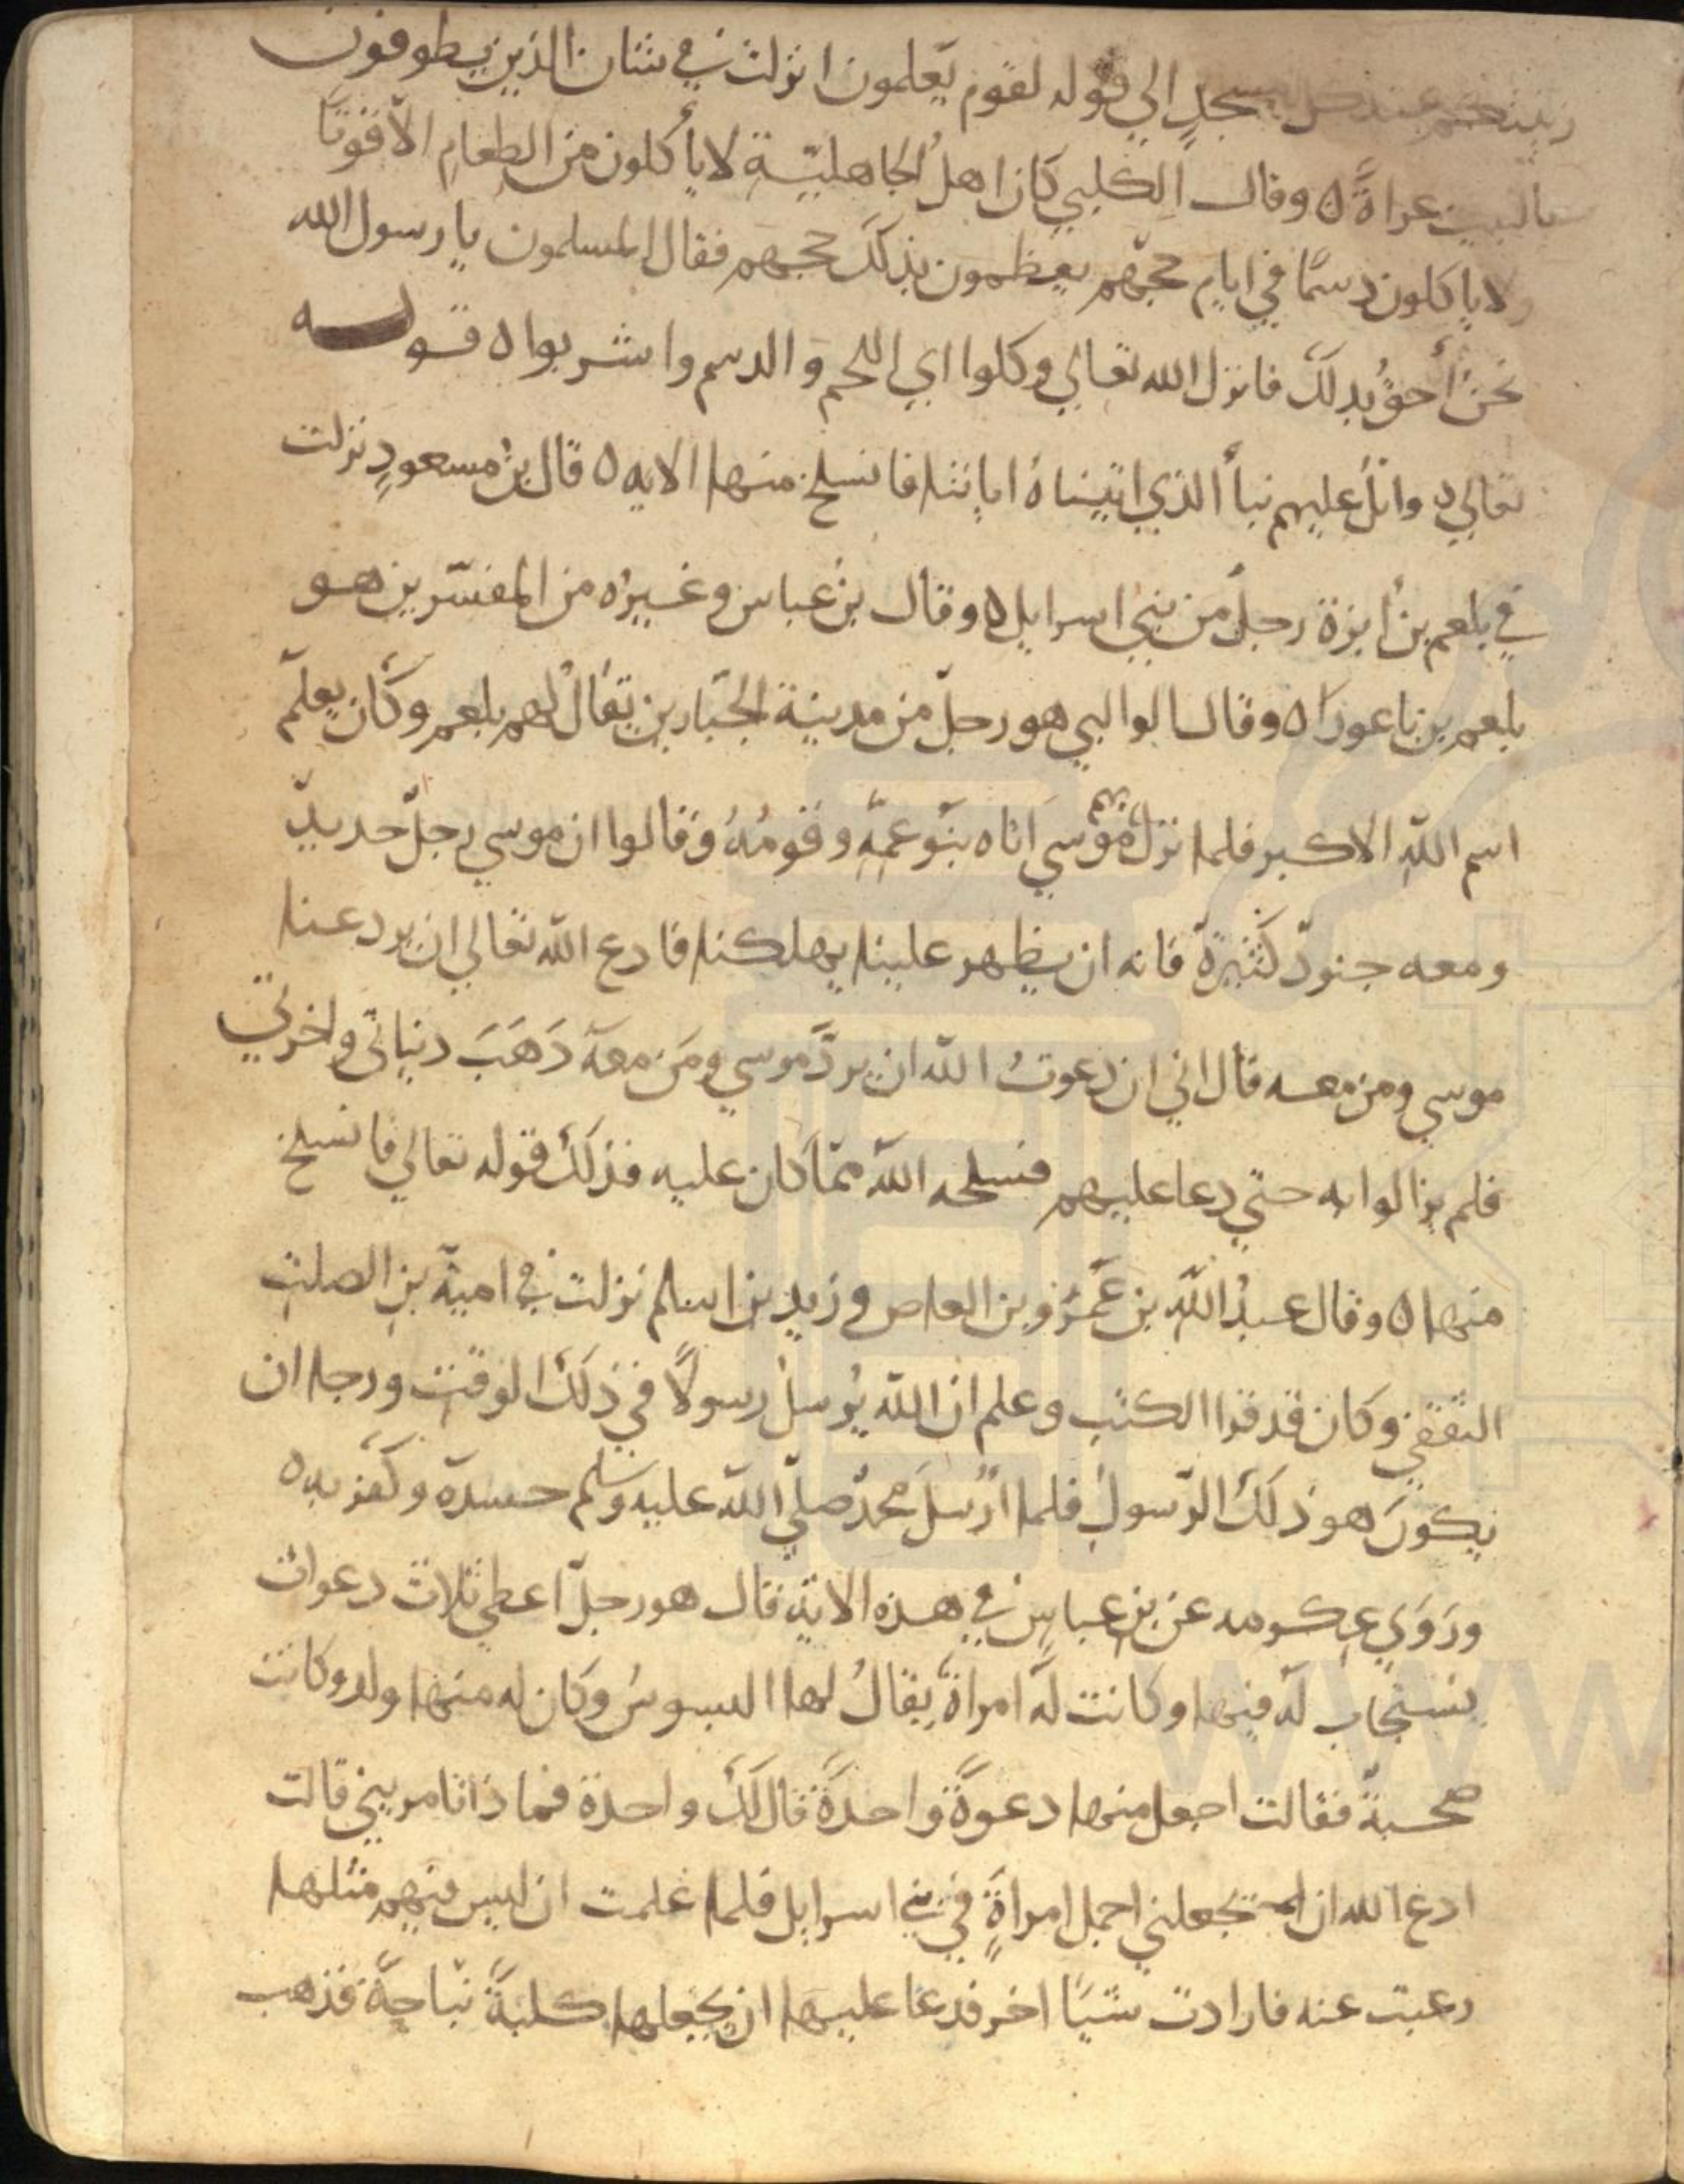 زينتكم عند كل مسجدٍ الي قوله لقوم يّعلمون انزلت في شان الذين يطوفون
بالبيت عراةً ٥ وقال الكلبي كان اهلُ الجاهليّةِ لا يأكلون من الطعامِ الّا قوتًا
ولا ياكلون دسمًا في ايامِ حجّهم يعظمون بذلكَ حجهم فقال المسلمون يا رسول الله
نحنُ أحقُ بذلكَ فانزل الله تعالي وكلوا اي اللحم و الدسم واشربوا ٥ قوله
تعالي ٥ واتلُ عليهم نبأ الذي اتيناهُ اياتنا فانسلخ منها الايه ٥ قال بنُ مسعودٍ نزلت
في بلعم بن أبزة رجلٌ من بني اسرايل ٥ وقال بن عباس وغيرُه من المفسّرين هو
بلعم بن باعوراه وقال الوالبي هو رجلٌ من مدينة الجبّارين يقالُ لهم بلعم وكان يعلّم
اسم اللّه الاكبر فلما نزل بهم موسي اتاه بنو عمّه وقومُهُ وقالوا ان موسي رجلٌ حديدٌ
ومعه جنودٌ كثيرةٌ فانه ان يظهر علينا يهلكنا فادع اللّه تعالي ان يرد عنا
موسي ومن معه قال اني ان دعوتُ اللّه ان يردَّ موسي ومَن معهَ ذَهَبَ دنياتي واخرتي
فلم يزالوا به حتي دعا عليهم فسلخه اللّه ممّا كان عليه فذلكَ قوله تعالي فانسلخ
منها ٥ وقال عبدُ اللّه بن عمرو بن العاص و زيد بن اسلم نزلت في امية بن الصلت
الثقفي وكان قد قرا الكتب وعلم ان اللّه يُرسلُ رسولًا في ذلكَ الوقت ورجا ان
يكونَ هو ذلكَ الرّسول فلما ارُسلَ محمدٌ صلي اللّه عليه وسلم حسدهَ وكفر به ٥
ورَوَي عكرمه عن بن عباسٍ في هذه الاية قال هو رجلٌ اعطي ثلاث دعوات
يستجاب لهُ فيها وكانت لهُ امراةٌ يقالُ لها البسوسُ وكان له منها ولد وكانت
صحبةٌ فقالت اجعل منها دعوةً واحدةً قال لكَ واحدة فما ذا تامريني قالت
ادع الله ان يجعلني اجمل امراةٍ في بني اسرايل فلما علمت ان ليس فيهم مثلها
رعبت عنه فارادت شيًا اخر فدعا عليها ان يجعلها كلبةً نبّاحةً فذهب